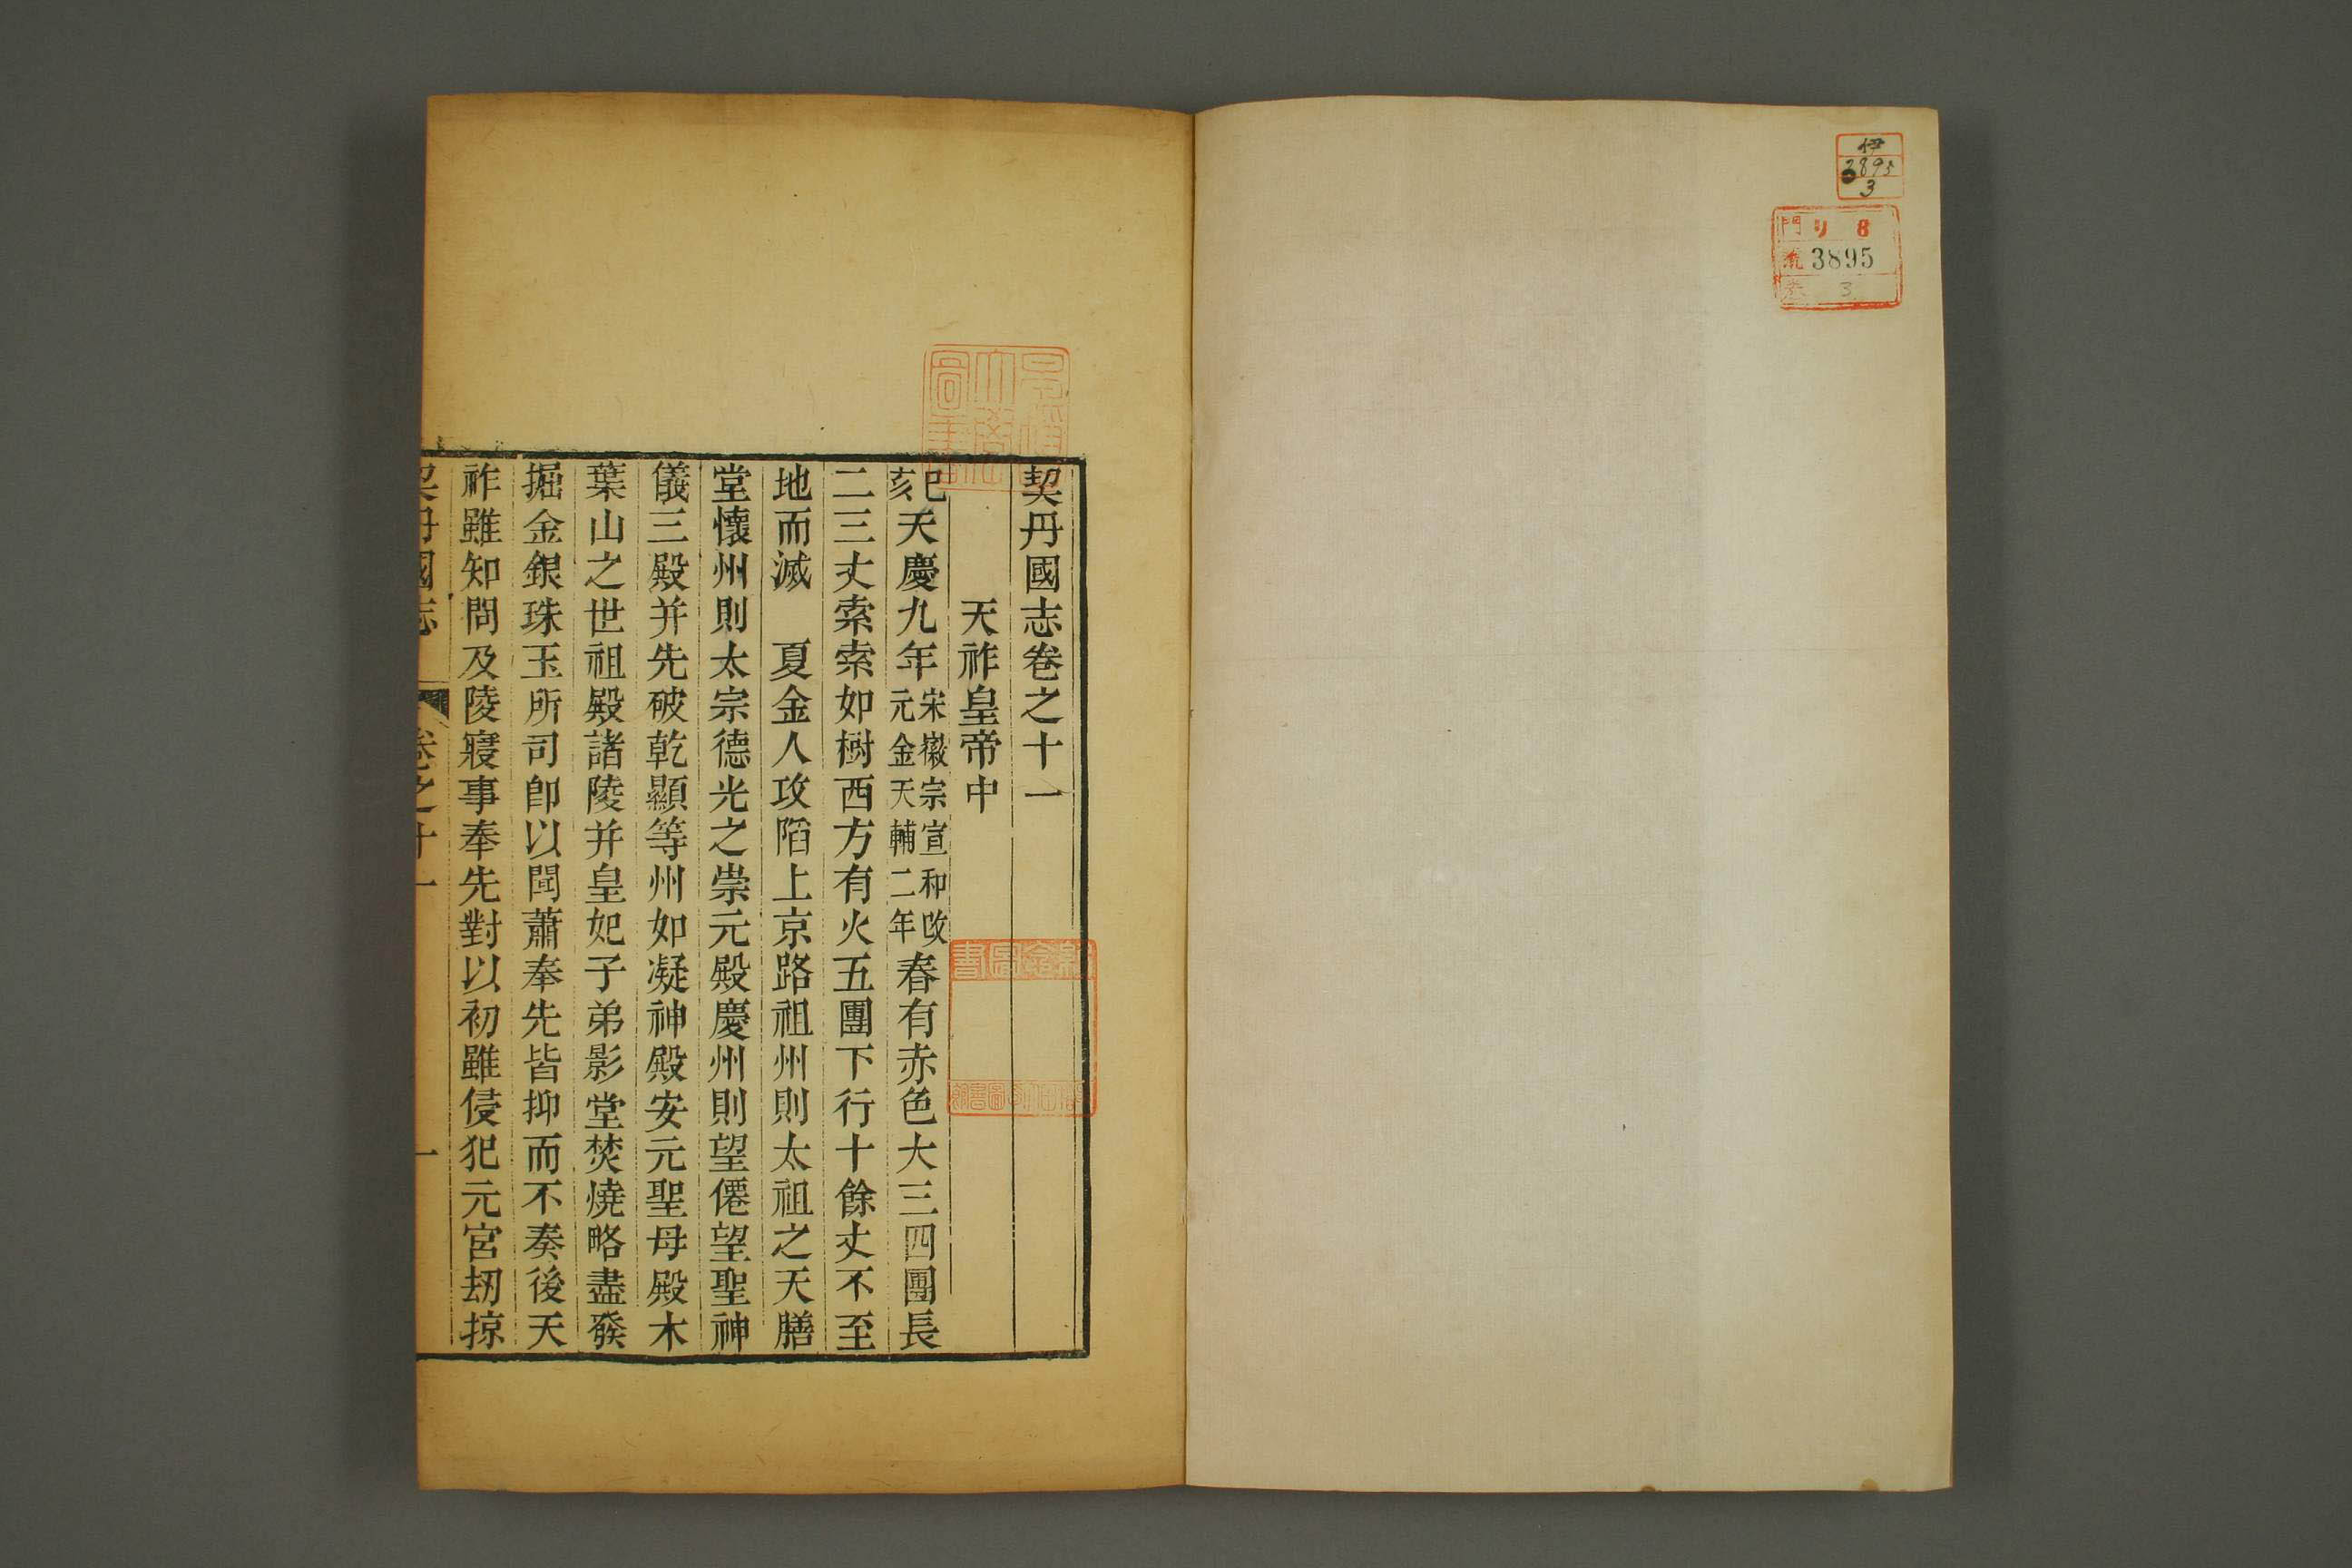 伊
3895
3
門 リ 8
號 3895
卷 3
契丹國志卷之十一
天祚皇帝中
己亥天慶九年宋徽宗宣和改元金天輔二年春有赤色大三四團長
二三丈索索如樹西方有火五團下行十餘丈不至
地而滅 夏金人攻陷上京路祖州則太祖之天膳
堂懷州則太宗德光之崇元殿慶州則望僊望聖神
儀三殿并先破乾顯等州如凝神殿安元聖母殿木
葉山之世祖殿諸陵并皇妃子弟影堂焚燒略盡發
掘金銀珠玉所司卽以聞蕭奉先皆抑而不奏後天
祚雖知問及陵寢事奉先對以初雖侵犯元宮刼掠
契丹國志 卷之十一 一